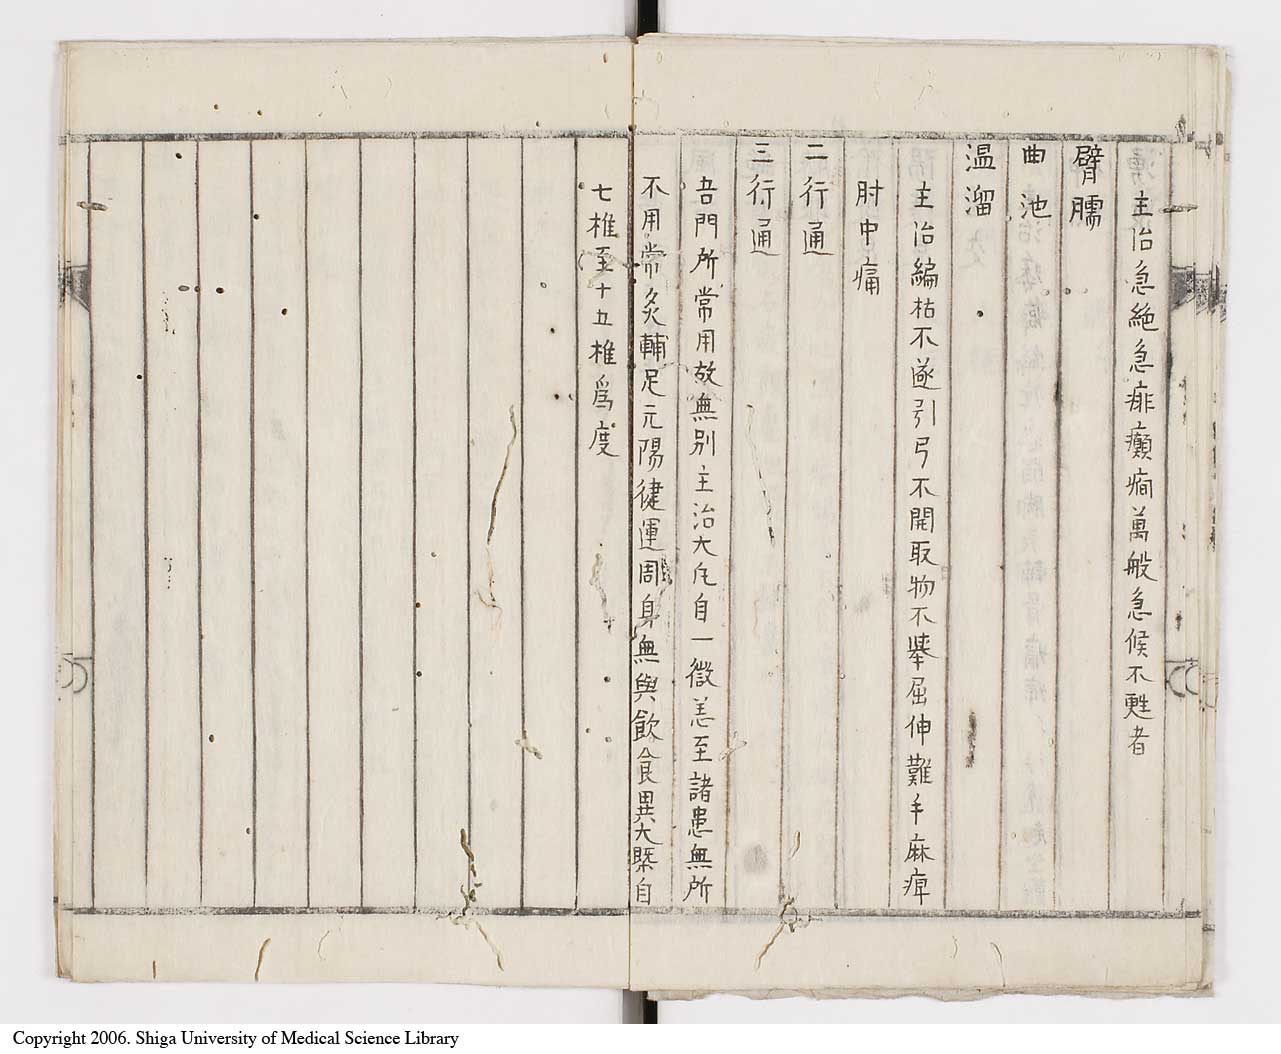 主治急絶急痱癲癇萬般急候不甦者
臂臑
曲池
温溜
主治編枯不遂引弓不開取物不举屈伸難手麻痺
肘中痛
二行通
三行通
吾門所常用故無別主治大凡自一微恙至諸患無所
不用常灸輔足元陽健運周身無與飲食異大槩自
七椎至十五椎爲度
Copyright 2006. Shiga University of Medical Science Library